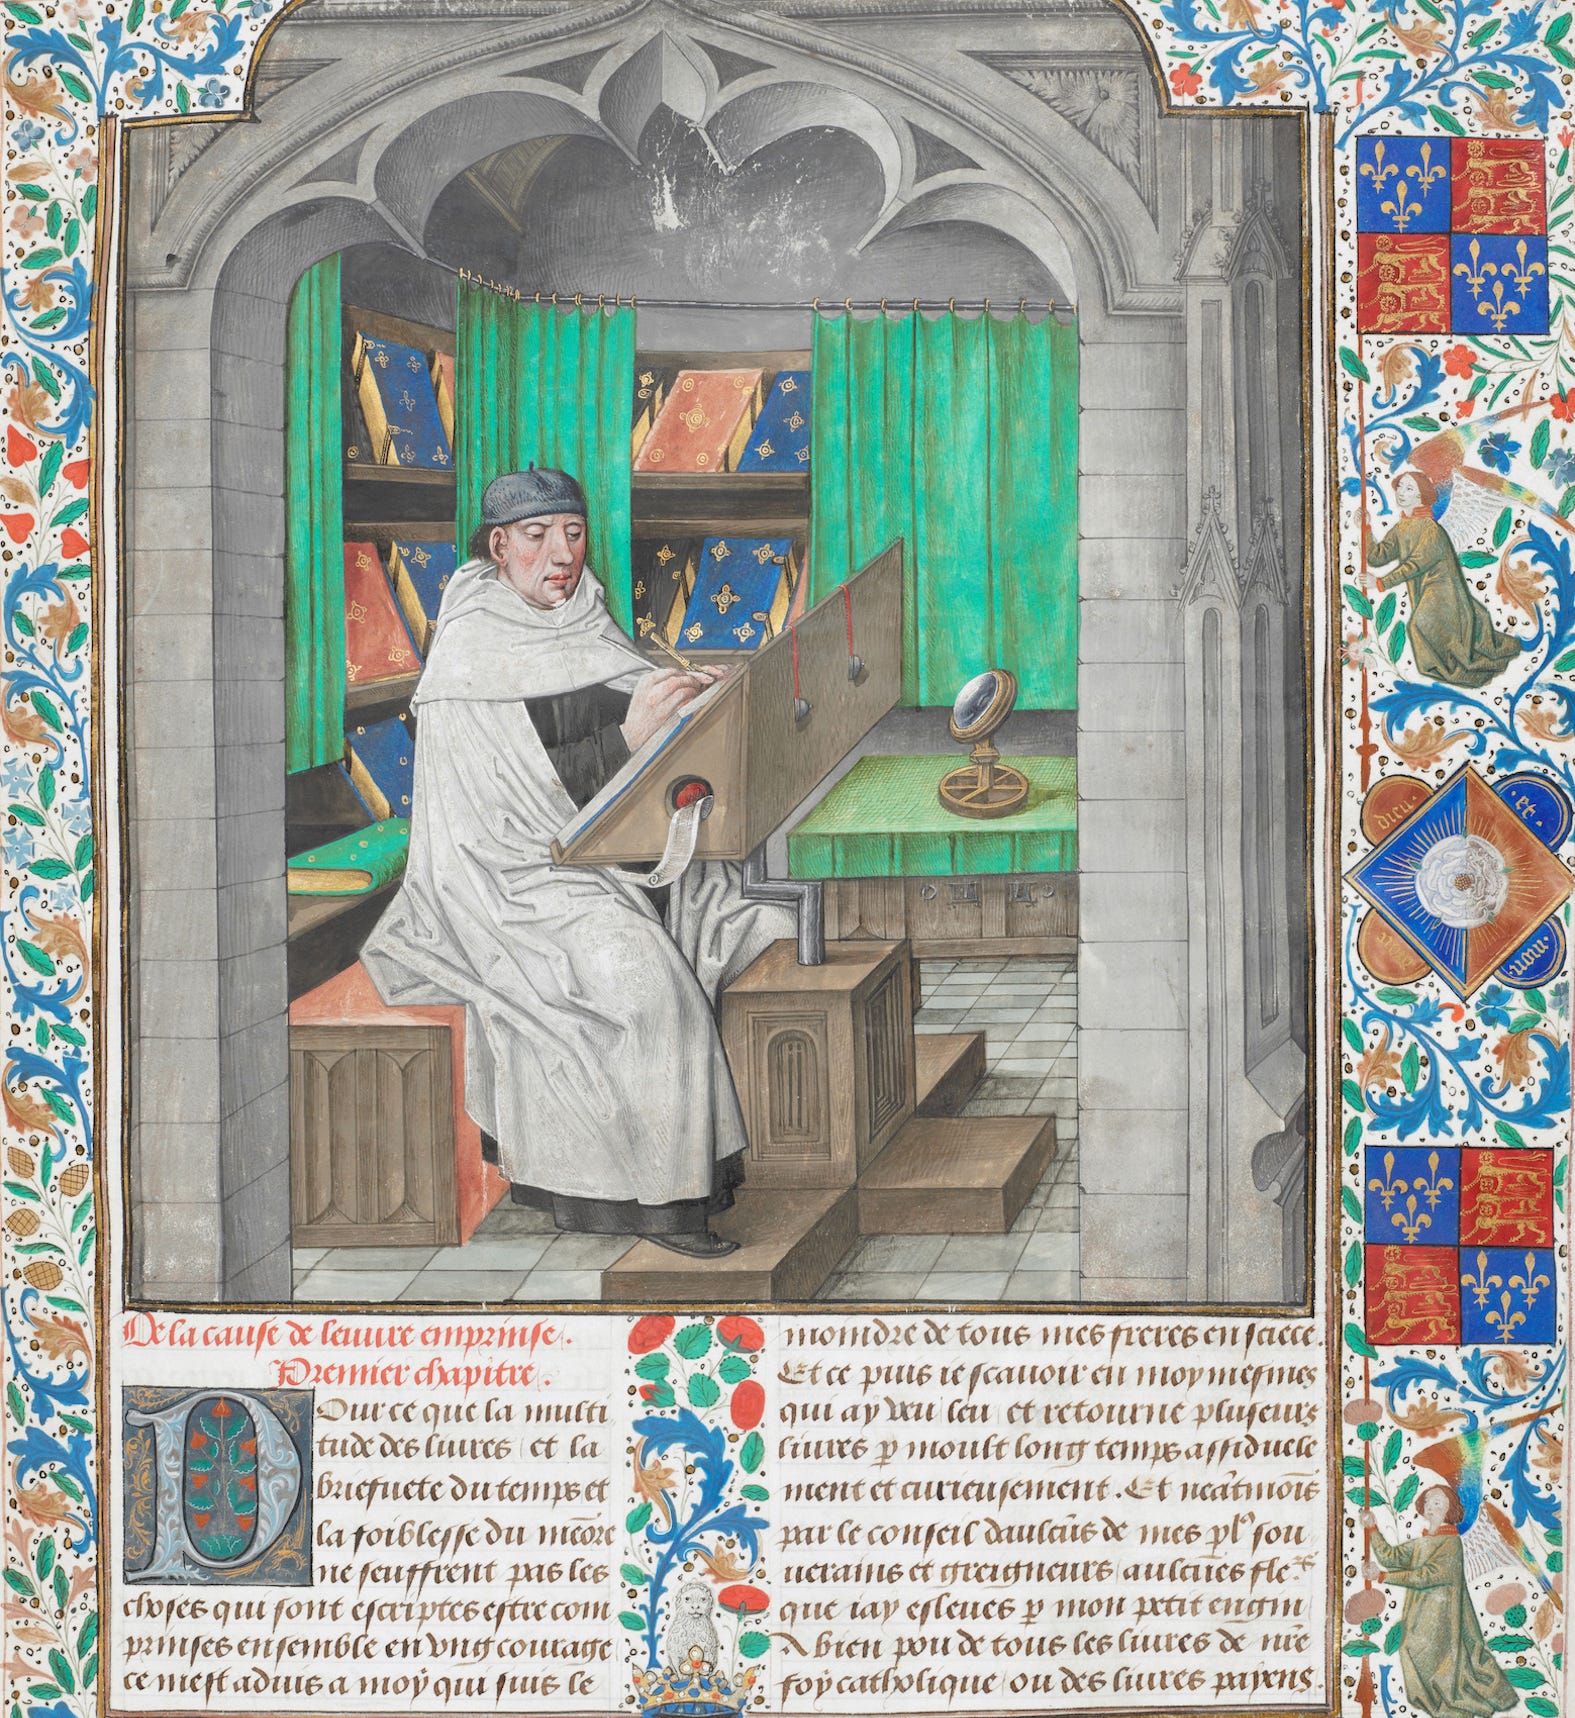 De la cause de leuure emprinse.
Premier chapitre.
Pour ce que la multi
tude des liures et la
briefuete du temps et
la foiblesse du mēore
ne seuffrent pas les
choses qui sont escriptes estre com
prinses ensemble en vng courage
ce mest aduis a moy qui suis le
moindre de tous mes freres en sciēce.
Et ce puis ie scauoir en moy mesmes
qui ay veu leu et retourne pluseurs
liures p moult long temps assiduele
ment et curieusement. Et neātmoīs
par le conseil daulcūs de mes pl9 sou
uerains et greigneurs aulcūes fle.rs
que iay esleues p mon petit engin
A bien pou de tous les liures de nr̄e
foy catholique ou des liures payens.
dieu
et
mon